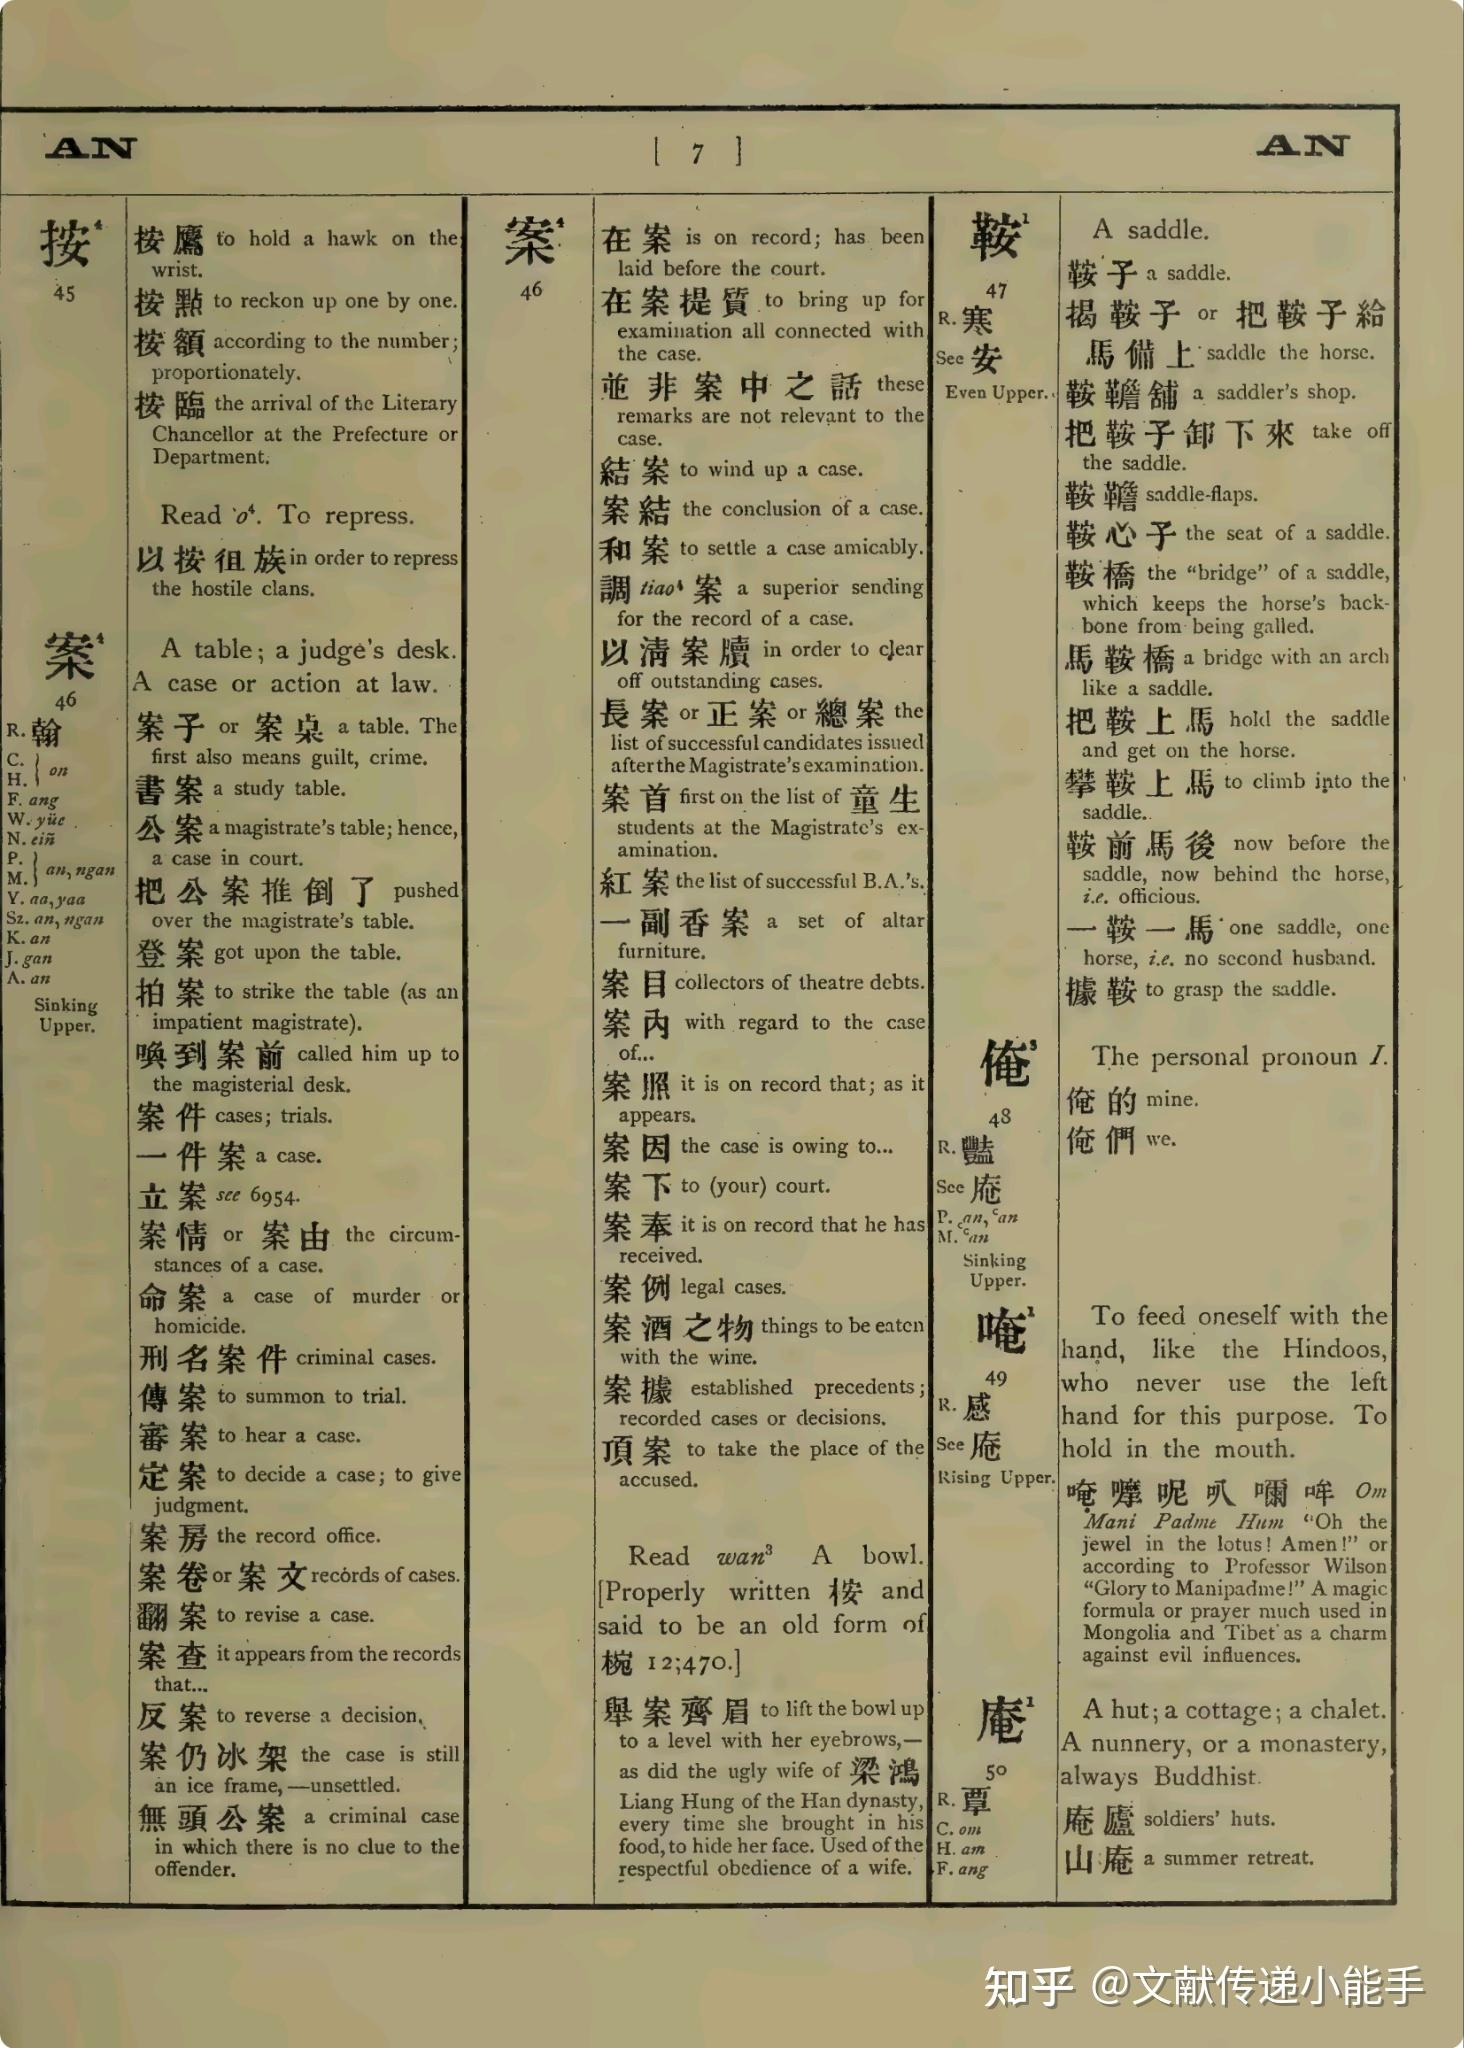 AN
[ 7 ]
AN
按⁴
45
按鷹 to hold a hawk on the
wrist.
按點 to reckon up one by one.
按額 according to the number;
proportionately.
按臨 the arrival of the Literary
Chancellor at the Prefecture or
Department.
Read o⁴. To repress.
以按徂族 in order to repress
the hostile clans.
案⁴
46
R. 翰
C.
H. } on
F. ang
W. yüe
N. eiñ
P.
M. } an, ngan
Y. aa, yaa
Sz. an, ngan
K. an
J. gan
A. an
Sinking
Upper.
A table; a judge's desk.
A case or action at law.
案子 or 案桌 a table. The
first also means guilt, crime.
書案 a study table.
公案 a magistrate's table; hence,
a case in court.
把公案推倒了 pushed
over the magistrate's table.
登案 got upon the table.
拍案 to strike the table (as an
impatient magistrate).
喚到案前 called him up to
the magisterial desk.
案件 cases; trials.
一件案 a case.
立案 see 6954.
案情 or 案由 the circum-
stances of a case.
命案 a case of murder or
homicide.
刑名案件 criminal cases.
傳案 to summon to trial.
審案 to hear a case.
定案 to decide a case; to give
judgment.
案房 the record office.
案卷 or 案文 records of cases.
翻案 to revise a case.
案查 it appears from the records
that...
反案 to reverse a decision.
案仍冰架 the case is still
an ice frame,—unsettled.
無頭公案 a criminal case
in which there is no clue to the
offender.
案⁴
46
在案 is on record; has been
laid before the court.
在案提質 to bring up for
examination all connected with
the case.
並非案中之話 these
remarks are not relevant to the
case.
結案 to wind up a case.
案結 the conclusion of a case.
和案 to settle a case amicably.
調 tiao⁴ 案 a superior sending
for the record of a case.
以清案牘 in order to clear
off outstanding cases.
長案 or 正案 or 總案 the
list of successful candidates issued
after the Magistrate's examination.
案首 first on the list of 童生
students at the Magistrate's ex-
amination.
紅案 the list of successful B.A.'s.
一副香案 a set of altar
furniture.
案目 collectors of theatre debts.
案內 with regard to the case
of...
案照 it is on record that; as it
appears.
案因 the case is owing to...
案下 to (your) court.
案奉 it is on record that he has
received.
案例 legal cases.
案酒之物 things to be eaten
with the wine.
案據 established precedents;
recorded cases or decisions.
頂案 to take the place of the
accused.
Read wan³ A bowl.
[Properly written 桉 and
said to be an old form of
椀 12,470.]
舉案齊眉 to lift the bowl up
to a level with her eyebrows,—
as did the ugly wife of 梁鴻
Liang Hung of the Han dynasty,
every time she brought in his
food, to hide her face. Used of the
respectful obedience of a wife.
鞍¹
47
R. 寒
See 安
Even Upper.
A saddle.
鞍子 a saddle.
揭鞍子 or 把鞍子給
馬備上 saddle the horse.
鞍韂舖 a saddler's shop.
把鞍子卸下來 take off
the saddle.
鞍韂 saddle-flaps.
鞍心子 the seat of a saddle.
鞍橋 the "bridge" of a saddle,
which keeps the horse's back-
bone from being galled.
馬鞍橋 a bridge with an arch
like a saddle.
把鞍上馬 hold the saddle
and get on the horse.
攀鞍上馬 to climb into the
saddle.
鞍前馬後 now before the
saddle, now behind the horse,
i.e. officious.
一鞍一馬 one saddle, one
horse, i.e. no second husband.
據鞍 to grasp the saddle.
俺³
48
R. 豔
See 庵
P. ꜀an, ꜂an
M. ꜂an
Sinking
Upper.
The personal pronoun I.
俺的 mine.
俺們 we.
唵¹
49
R. 感
See 庵
Rising Upper.
To feed oneself with the
hand, like the Hindoos,
who never use the left
hand for this purpose. To
hold in the mouth.
唵嚤呢叭嘪吽 Om
Mani Padme Hum "Oh the
jewel in the lotus! Amen!" or
according to Professor Wilson
"Glory to Manipadme!" A magic
formula or prayer much used in
Mongolia and Tibet as a charm
against evil influences.
庵¹
50
R. 覃
C. om
H. am
F. ang
A hut; a cottage; a chalet.
A nunnery, or a monastery,
always Buddhist.
庵廬 soldiers' huts.
山庵 a summer retreat.
知乎 @文献传递小能手